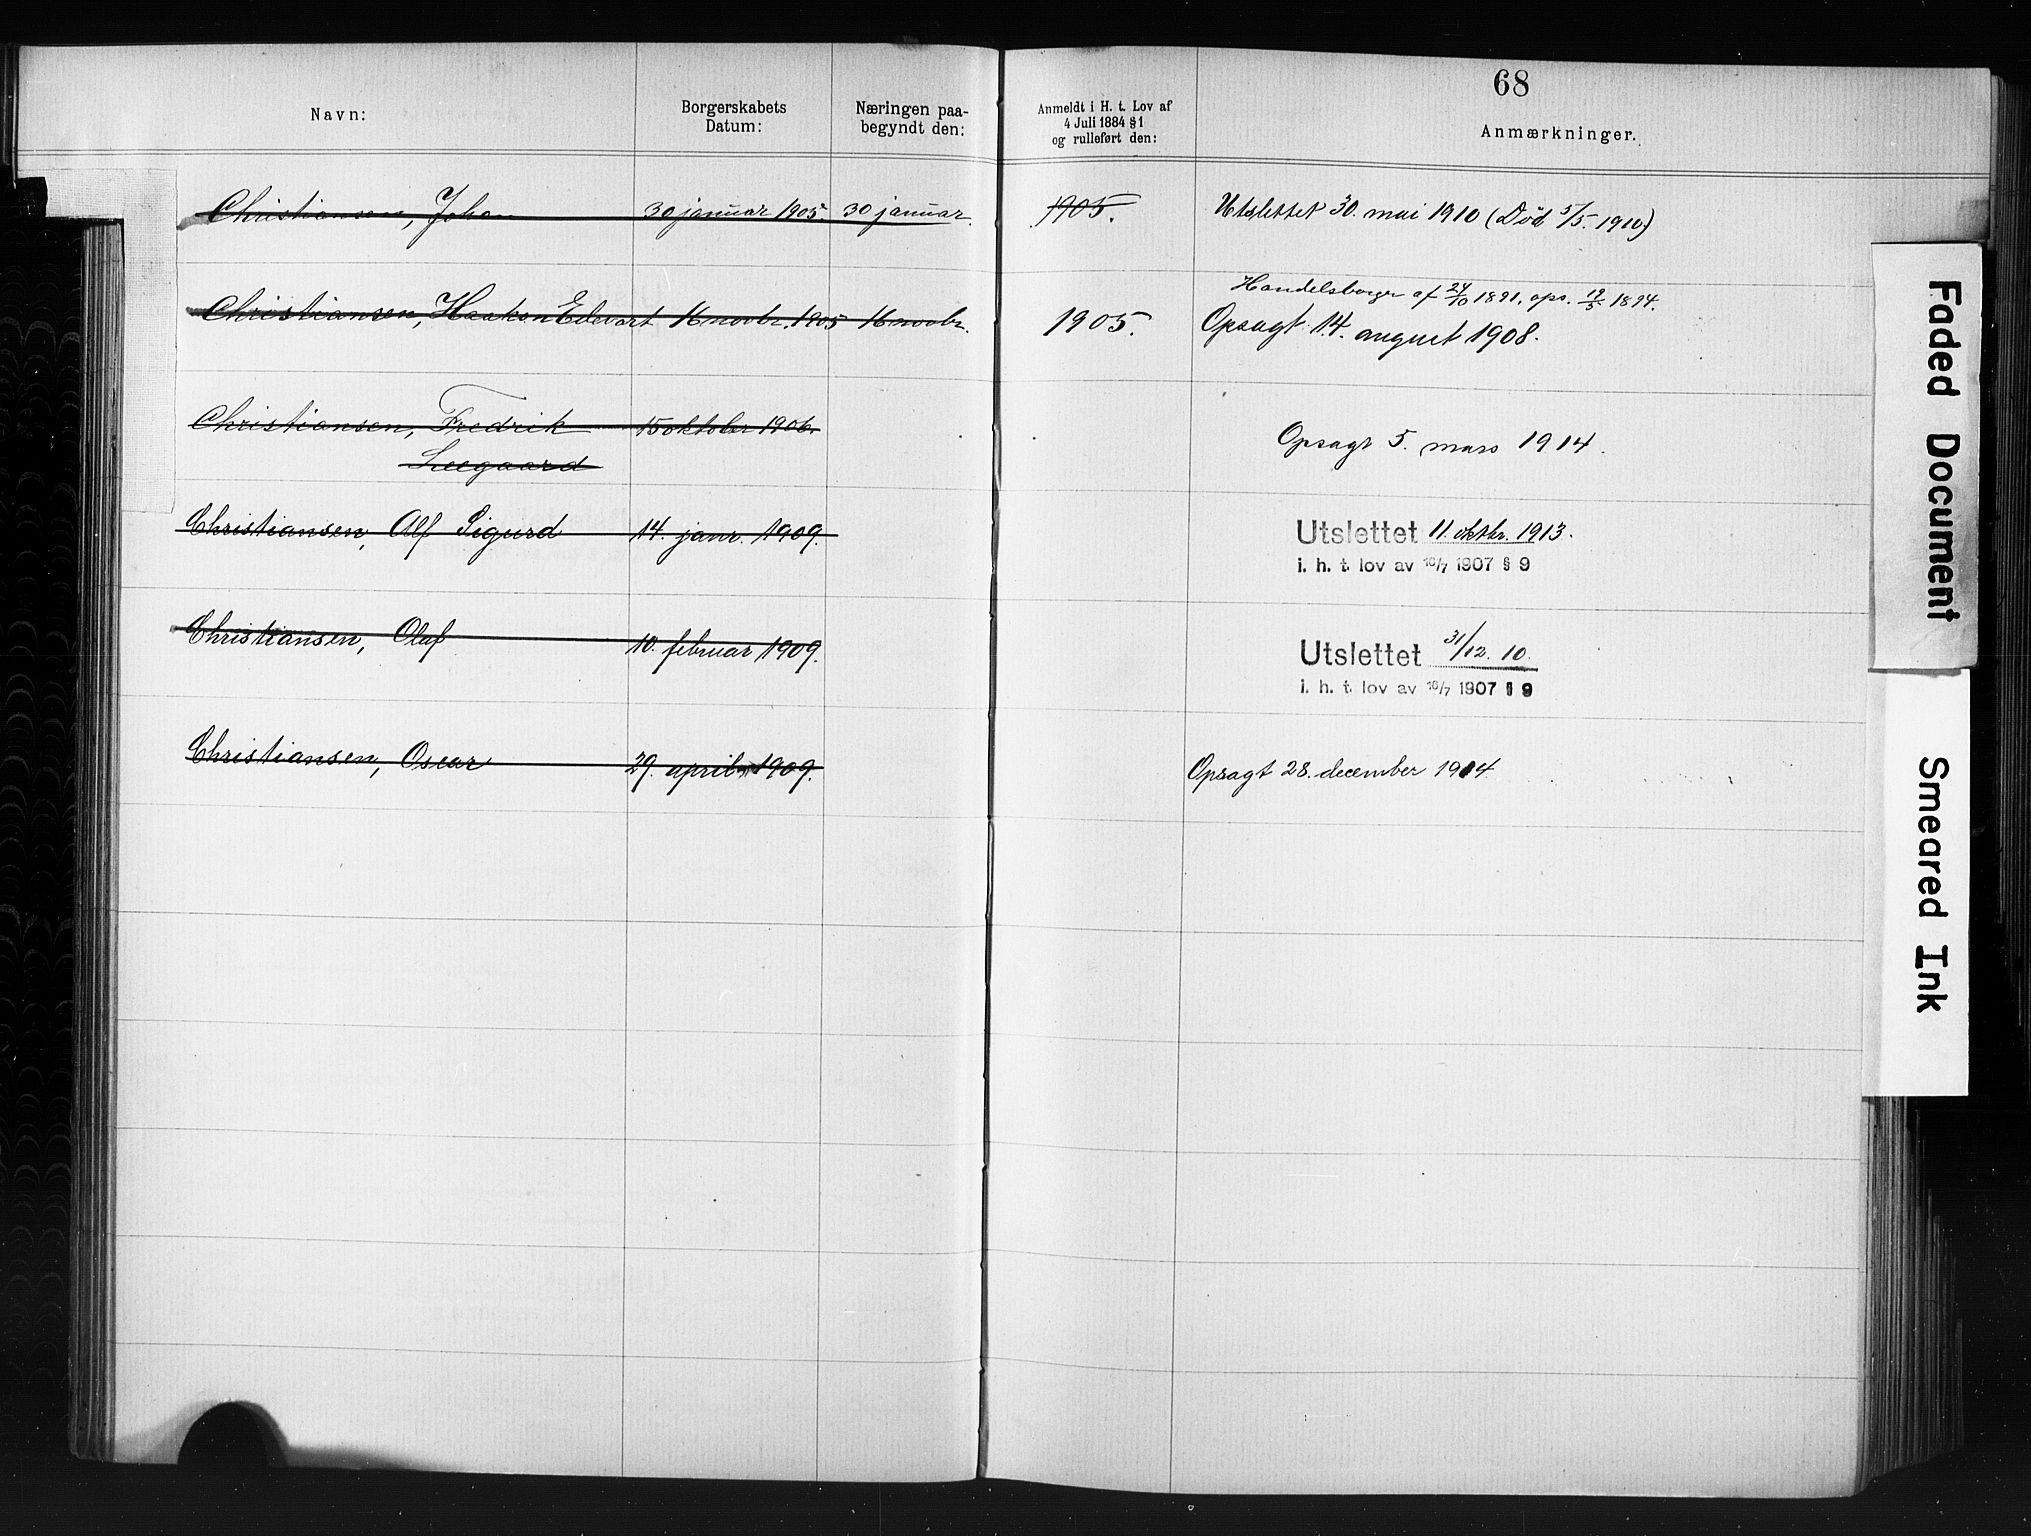 68
Navn:
Borgerskabets Datum:
Næringen paa-begyndt den:
Anmeldt i H. t. Lov af 4 Juli 1884 § 1 og rulleført den:
Anmærkninger.
Christiansen, Johan 30 januar 1905 30 januar 1905. Utslettet 30. mai 1910 (Død 5/5. 1910)
Handelsborger af 24/10 1891, ops. 19/5 1894.
Christiansen, Haakon Edevart 16 novbr. 1905 16 novbr. 1905. Opsagt 14. august 1908.
Christiansen, Fredrik 15 oktober 1906. Opsagt 5. mars 1914.
Seegaard
Christiansen, Alf Sigurd 14. janr. 1909. Utslettet 11. oktbr. 1913.
i. h. t. lov av 16/7 1907 § 9
Christiansen, Olaf 10. februar 1909. Utslettet 31/12. 10.
i. h. t. lov av 16/7 1907 § 9
Christiansen, Oscar 29. april 1909. Opsagt 28. december 1914
Faded Document
Smeared Ink